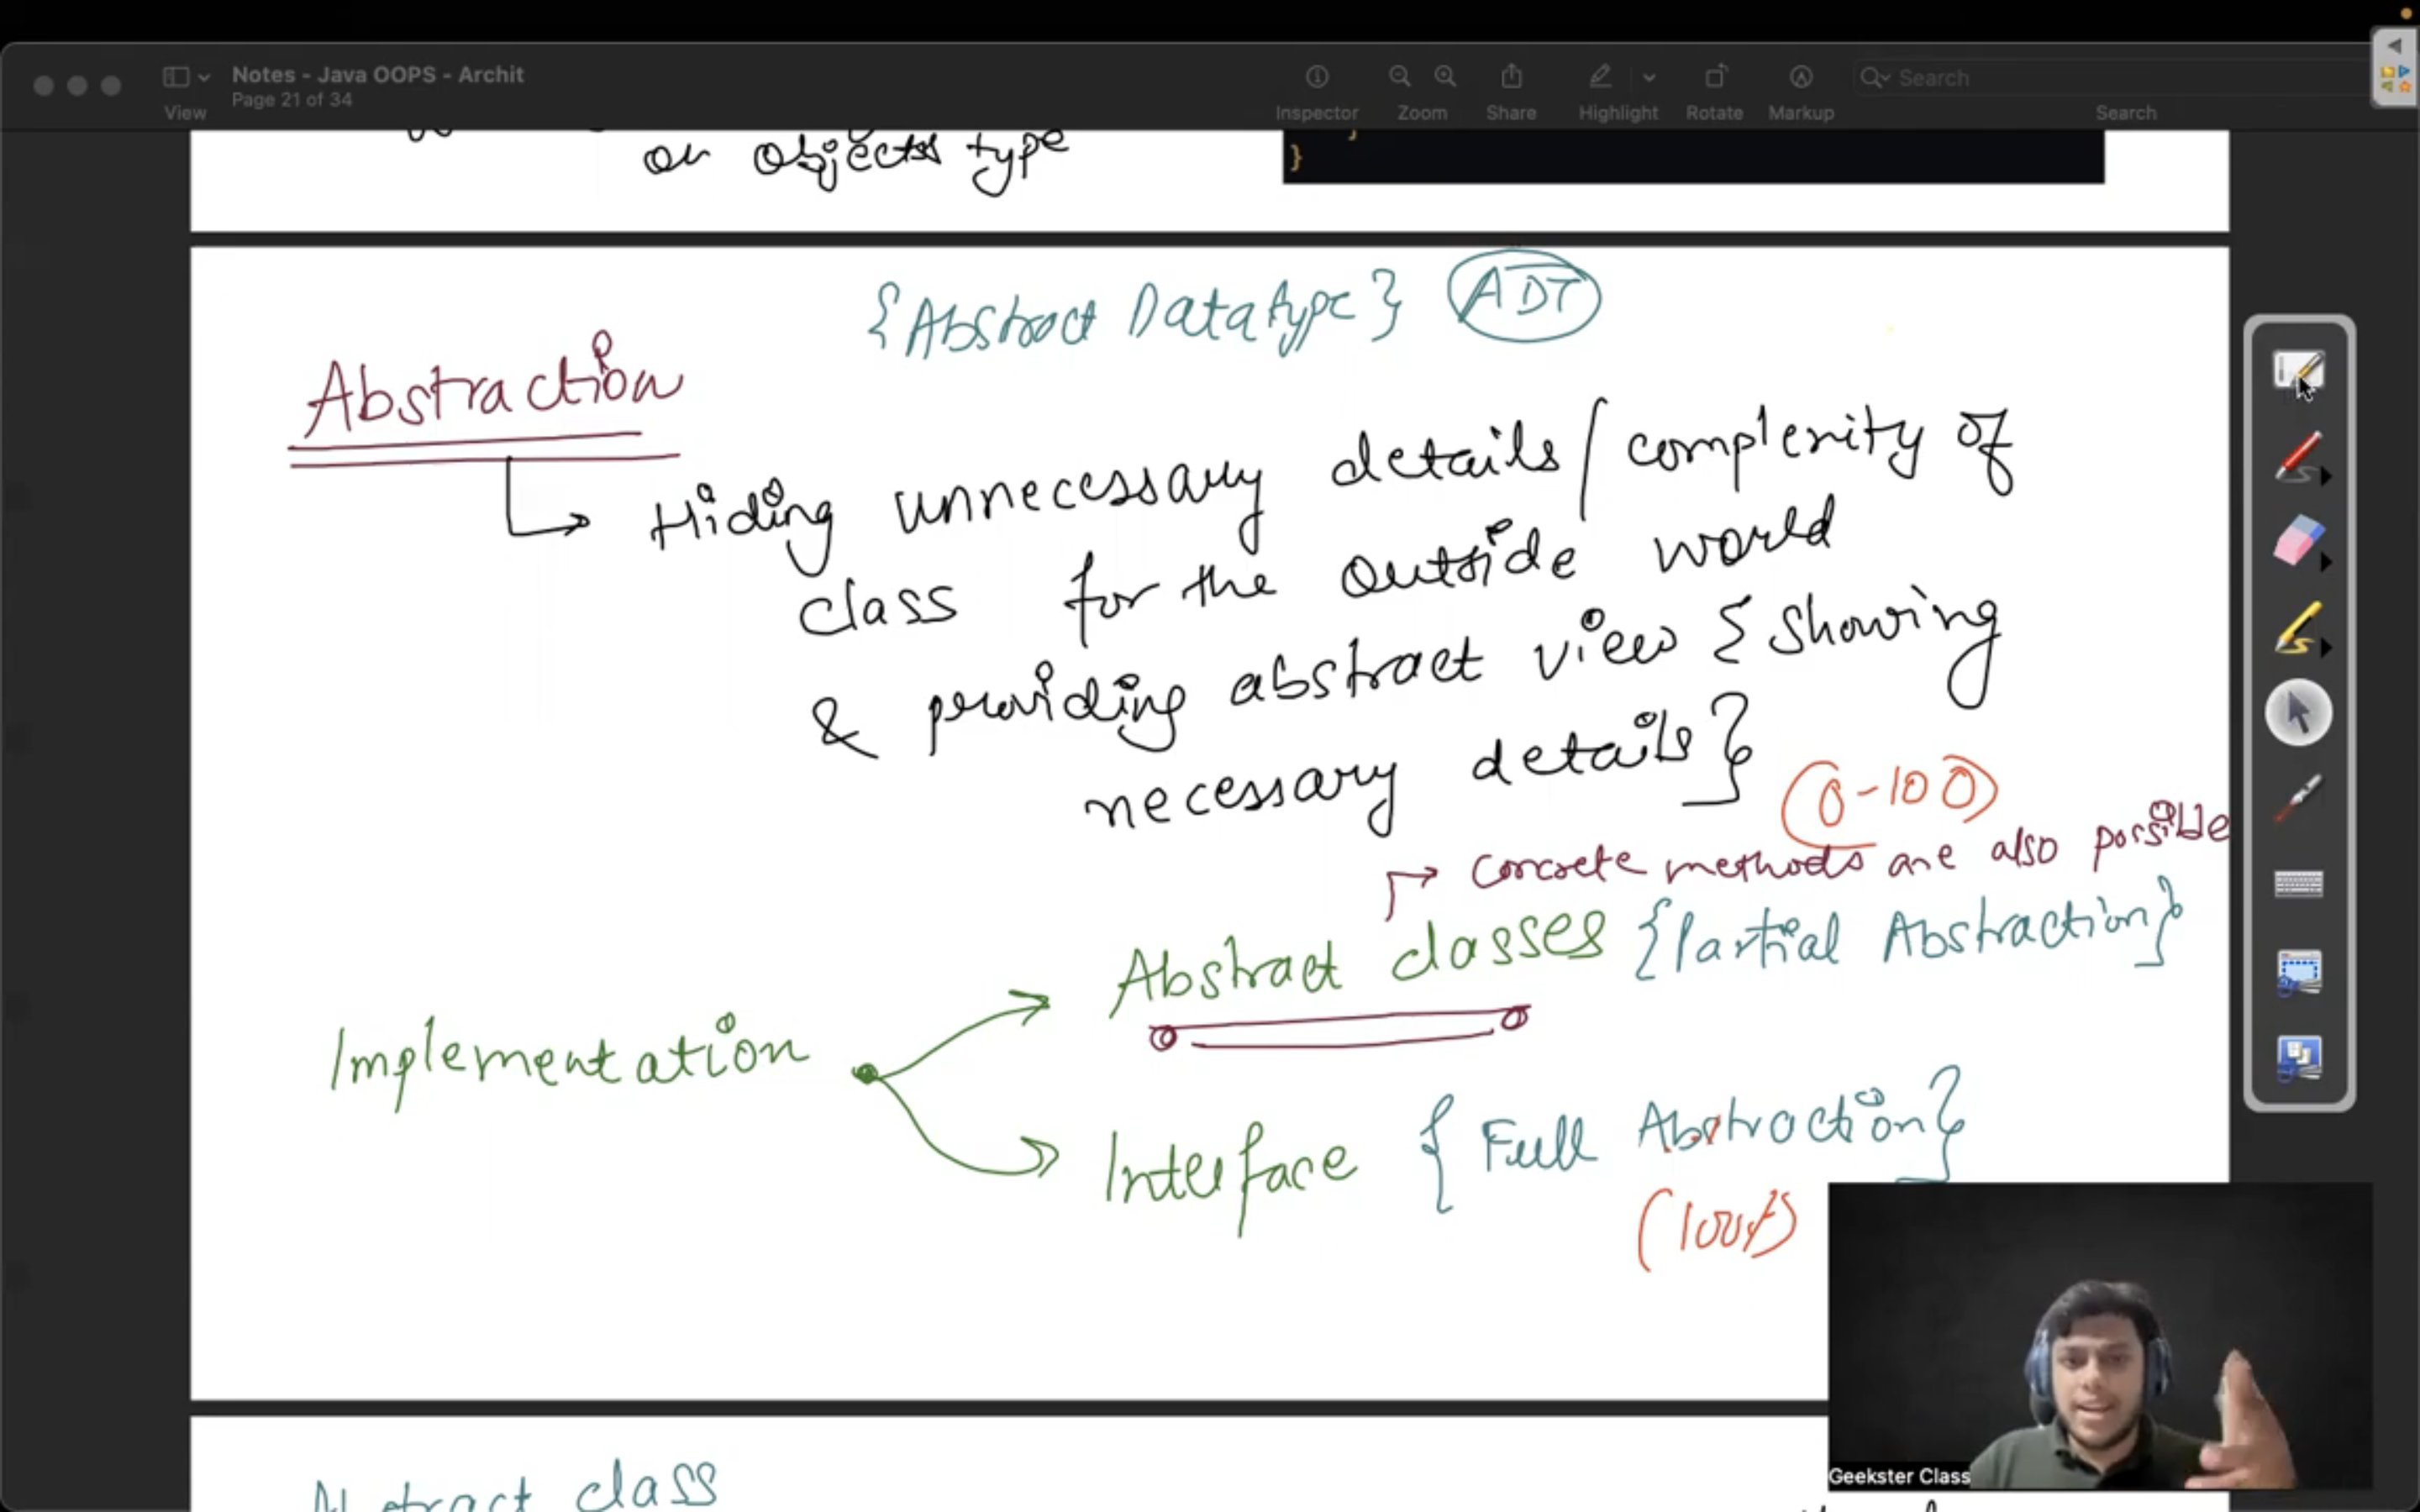 Notes - Java OOPS - Archit
Page 21 of 34
View
Inspector
Zoom
Share
Highlight
Rotate
Markup
Search
Search
on objects type
}
{Abstract Datatype} ADT
Abstraction
Hiding unnecessary details/complexity of
class for the outside world
& providing abstract view {showing
necessary details}
0-100
concrete methods are also possible
Abstract classes {Partial Abstraction}
Implementation
Interface {Full Abstraction}
(100%)
Geekster Class
Abstract class